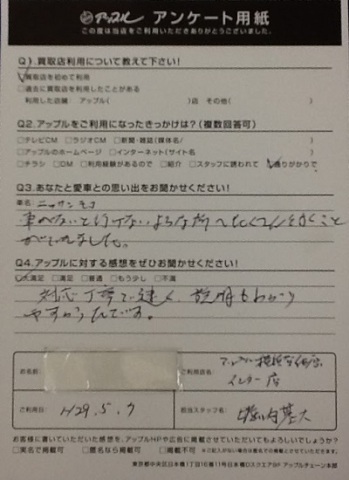 アップル アンケート用紙
この度は当店をご利用いただきありがとうございました。
Q1.買取店利用について教えて下さい!
☑買取店を初めて利用
□過去に買取店を利用したことがある
利用した店舗 アップル( )店 その他( )
Q2.アップルをご利用になったきっかけは?(複数回答可)
□テレビCM □ラジオCM □新聞・雑誌(媒体名/ )
□アップルのホームページ □インターネット(サイト名 )
□チラシ □DM □利用経験があるので □紹介 □スタッフに誘われて ☑通りがかりで
Q3.あなたと愛車との思い出をお聞かせください!
車名: ニッサン モコ
車でないと行けないような所へたくさん行くこと
ができました。
Q4.アップルに対する感想をぜひお聞かせください!
☑大満足 □満足 □普通 □もう少し □不満
対応丁寧で速く、説明もわかり
やすかったです。
お名前:
ご利用店名:
インター店
ご利用日: H29.5.7
担当スタッフ名:
お客様に書いていただいた感想を、アップルHPや広告に掲載させていただいてもよろしいでしょうか?
□実名で掲載可 □匿名なら掲載可 □掲載不可 ※ご記入がない場合は匿名での掲載とさせていただきます。
東京都中央区日本橋1丁目16番11号日本橋DスクエアBF アップルチェーン本部